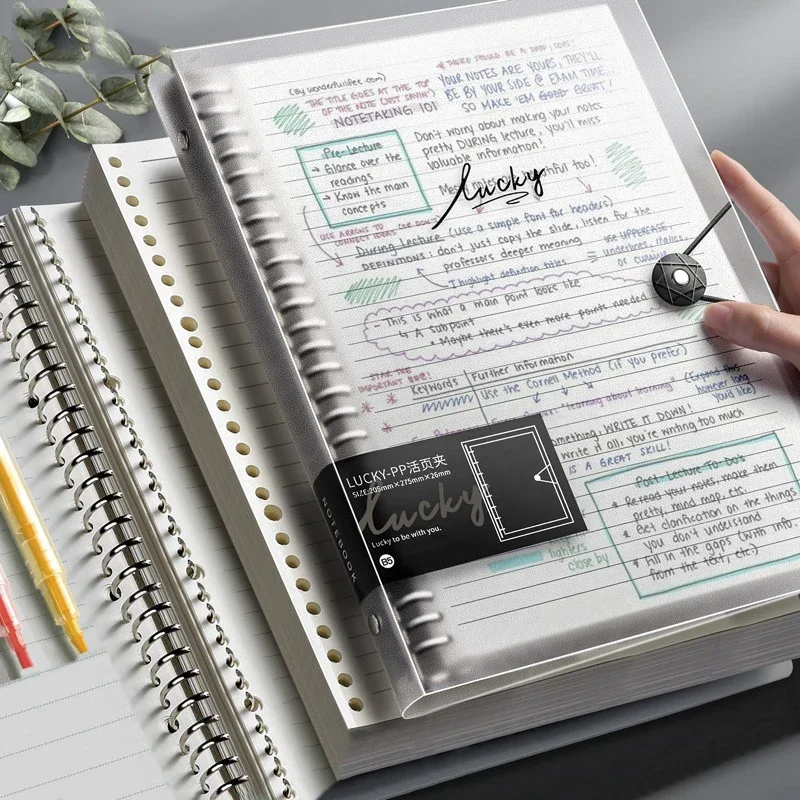 (By wonderfulifee.com)
THE TITLE GOES AT THE TOP
OF THE NOTE (JUST SAYIN')
NOTETAKING 101
* THERE SHOULD BE A
YOUR NOTES ARE YOURS, THEY'LL
BE BY YOUR SIDE @ EXAM TIME...
SO MAKE 'EM GOOD GREAT!
Don't worry about making your notes
pretty DURING lecture, you'll miss
valuable information!
too!
lucky
Pre-Lecture
→ Glance over the
readings
→ Know the main
concepts
USE ARROWS TO
CONNECT IDEAS (OR DON'T
During Lecture (use a simple font for headers)
DEFINITIONS: don't just copy the slide, listen for the
professors deeper meaning
I highlight definition titles
= use UPPERCASE,
underlines, italics,
or cursive
- This is what a main point looks like
↳ A subpoint
* Maybe there's even more points needed
STAR THE
IMPORTANT
Keywords
Further Information
Use the Cornell Method (if you prefer)
"learning about learning"
(Expand this
however long
you'd like)
WRITE IT DOWN!
Write it all, you're writing too much
IS A GREAT SKILL!
Post-Lecture To-Do's
* Re-read your notes, make them
pretty, mind map, etc.
* Get clarification on the things
you don't understand
* Fill in the gaps (with info.
from the text, etc.)
close by
LUCKY-PP活页夹
SIZE:205mm×275mm×26mm
lucky
Lucky to be with you.
B5
NOTEBOOK